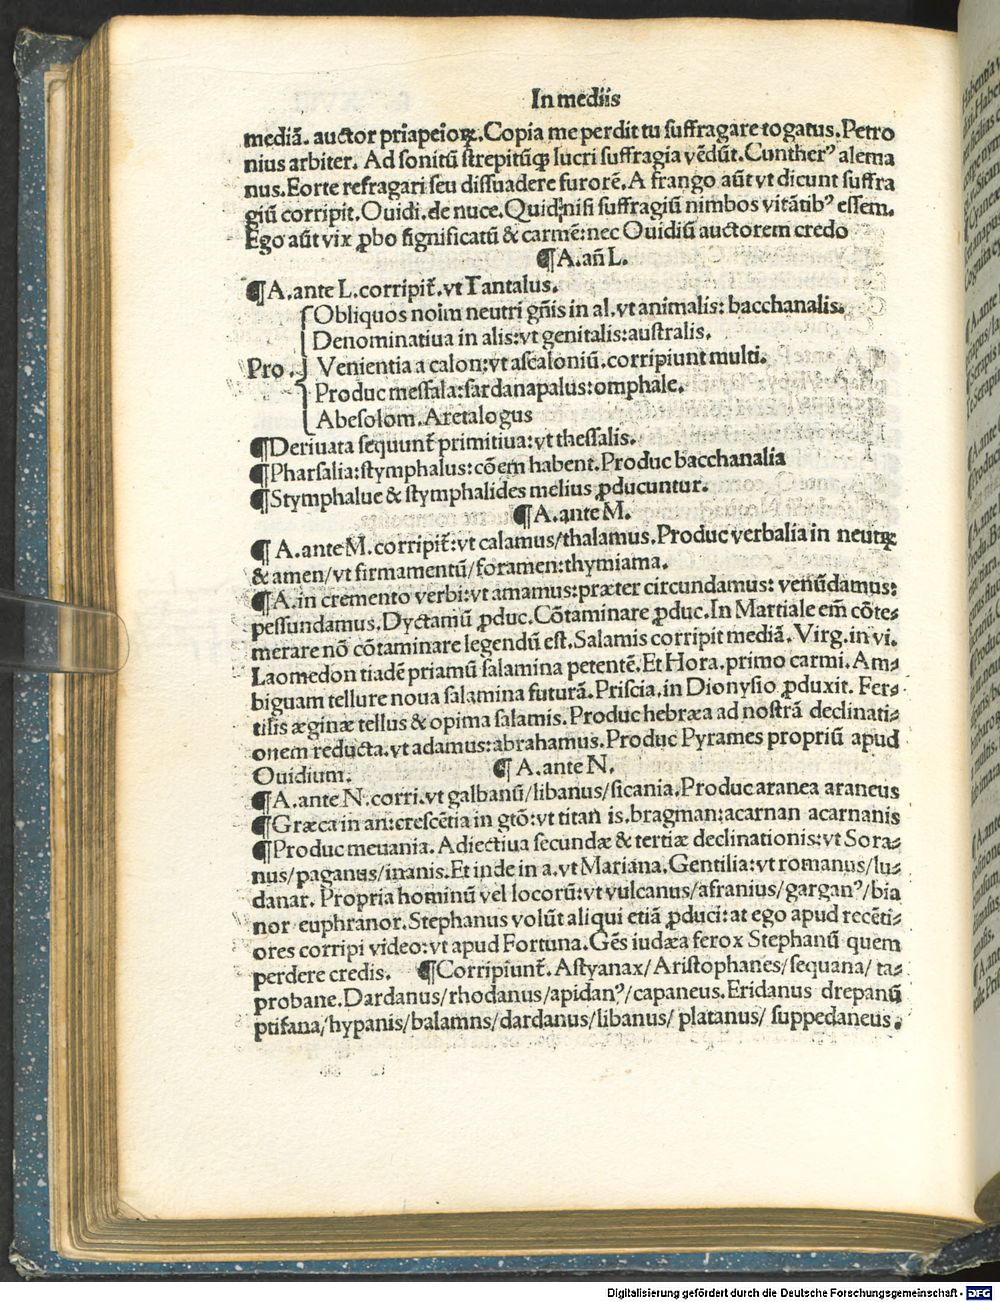 In mediis
mediã. auctor priapeioꝝ. Copia me perdit tu suffragare togatus. Petro
nius arbiter. Ad sonitũ strepitũqꝫ lucri suffragia vẽdũt. Cuntherꝰ alema
nus. Eorte refragari seu dissuadere furorẽ. A frango aũt vt dicunt suffra
giũ corripit. Ouidi. de nuce. Quid nisi suffragiũ nimbos vitãtibꝰ essem.
Ego aũt vix ꝓbo significatũ & carmẽ: nec Ouidiũ auctorem credo
¶ A. añ L.
¶ A. ante L. corripit̃. vt Tantalus.
Obliquos noim neutri gñis in al. vt animalis: bacchanalis.
Denominatiua in alis: vt genitalis: australis.
Pro. Venientia a calon: vt ascaloniũ. corripiunt multi.
Produc messala: sardanapalus: omphale.
Abesolom. Aretalogus
¶ Deriuata sequunt̃ primitiua: vt thessalis.
¶ Pharsalia: stymphalus: cõem habent. Produc bacchanalia
¶ Stymphalue & stymphalides melius ꝓducuntur.
¶ A. ante M.
¶ A. ante M. corripit̃: vt calamus/thalamus. Produc verbalia in neutꝝ
& amen/vt firmamentũ/foramen: thymiama.
¶ A. in cremento verbi: vt amamus: præter circundamus: venũdamus:
pessundamus. Dyctamũ ꝓduc. Cõtaminare ꝓduc. In Martiale em̃ cõte⸗
merare nõ cõtaminare legendũ est. Salamis corripit mediã. Virg. in vi.
Laomedon tiadẽ priamũ salamina petentẽ. Et Hora. primo carmi. Am⸗
biguam tellure noua salamina futurã. Priscia. in Dionysio ꝓduxit. Fer⸗
tilis æginæ tellus & opima salamis. Produc hebræa ad nostrã declinati⸗
onem reducta. vt adamus: abrahamus. Produc Pyrames propriũ apud
Ouidium. ¶ A. ante N.
¶ A. ante N. corri. vt galbanũ/libanus/sicania. Produc aranea araneus
¶ Græca in an: crescẽtia in gtõ: vt titan is. bragman: acarnan acarnanis
¶ Produc meuania. Adiectiua secundæ & tertiæ declinationis: vt Sora⸗
nus/paganus/inanis. Et inde in a. vt Mariana. Gentilia: vt romanus/lu⸗
danar. Propria hominũ vel locorũ: vt vulcanus/afranius/garganꝰ/bia
nor euphranor. Stephanus volũt aliqui etiã ꝓduci: at ego apud recẽti⸗
ores corripi video: vt apud Fortuna. Gẽs iudæa ferox Stephanũ quem
perdere credis. ¶ Corripiunt̃. Astyanax/Aristophanes/sequana/ta⸗
probane. Dardanus/rhodanus/apidanꝰ/capaneus. Eridanus drepanũ
ptisana/hypanis/balamns/dardanus/libanus/platanus/suppedaneus.
Digitalisierung gefördert durch die Deutsche Forschungsgemeinschaft - DFG